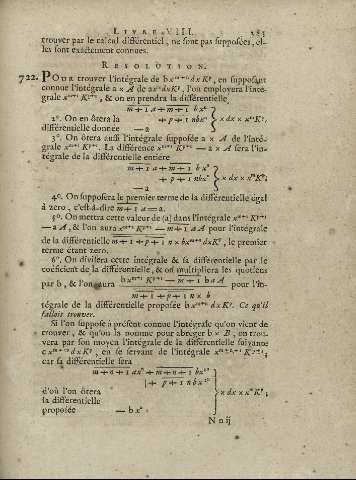 LIVRE VIII. 283
trouver par le calcul différentiel, ne sont pas supposées, el-
les sont exactement connues.
RESOLUTION.
722. POUR trouver l'intégrale de b x^{m+n} d x K^p, en supposant
connue l'intégrale a × A de a x^m d x K^p, l'on employera l'inté-
grale x^{m+1} K^{p+1}, & on en prendra la différentielle,
m + 1 a + m + 1 b x^n
2°. On en ôtera la + p + 1 n b x^n } × d x × x^m K^p;
différentielle donnée — a
3°. On ôtera aussi l'intégrale supposée a × A de l'inté-
grale x^{m+1} K^{p+1}. La différence x^{m+1} K^{p+1} — a × A sera l'in-
tégrale de la différentielle entiere
m + 1 a + m + 1 b x^n
+ p + 1 n b x^n } × d x × x^m K^p;
— a
4°. On supposera le premier terme de la différentielle égal
à zero, c'est-à-dire m + 1 a = a.
5°. On mettra cette valeur de (a) dans l'intégrale x^{m+1} K^{p+1}
— a A, & l'on aura x^{m+1} K^{p+1} — m + 1 a A pour l'intégrale
de la différentielle m + 1 + p + 1 n × b x^{m+n} d x K^p, le premier
terme étant zero.
6°. On divisera cette intégrale & sa différentielle par le
coëficient de la différentielle, & on multipliera les quotiens
par b, & l'on aura b x^{m+1} K^{p+1} — m + 1 b a A pour l'in-
m + 1 + p + 1 n × b
tégrale de la différentielle proposée b x^{m+n} d x K^p. Ce qu'il
falloit trouver.
Si l'on suppose à présent connue l'intégrale qu'on vient de
trouver, & qu'on la nomme pour abreger b × B, on trou-
vera par son moyen l'intégrale de la différentielle suivante
c x^{m+2n} d x K^p, en se servant de l'intégrale x^{m+n+1} K^{p+1};
car sa différentielle sera
m + n + 1 a x^n + m + n + 1 b x^{2n}
+ p + 1 n b x^{2n}
d'où l'on ôtera } × d x × x^m K^p;
la différentielle
proposée — b x^n
N n ij